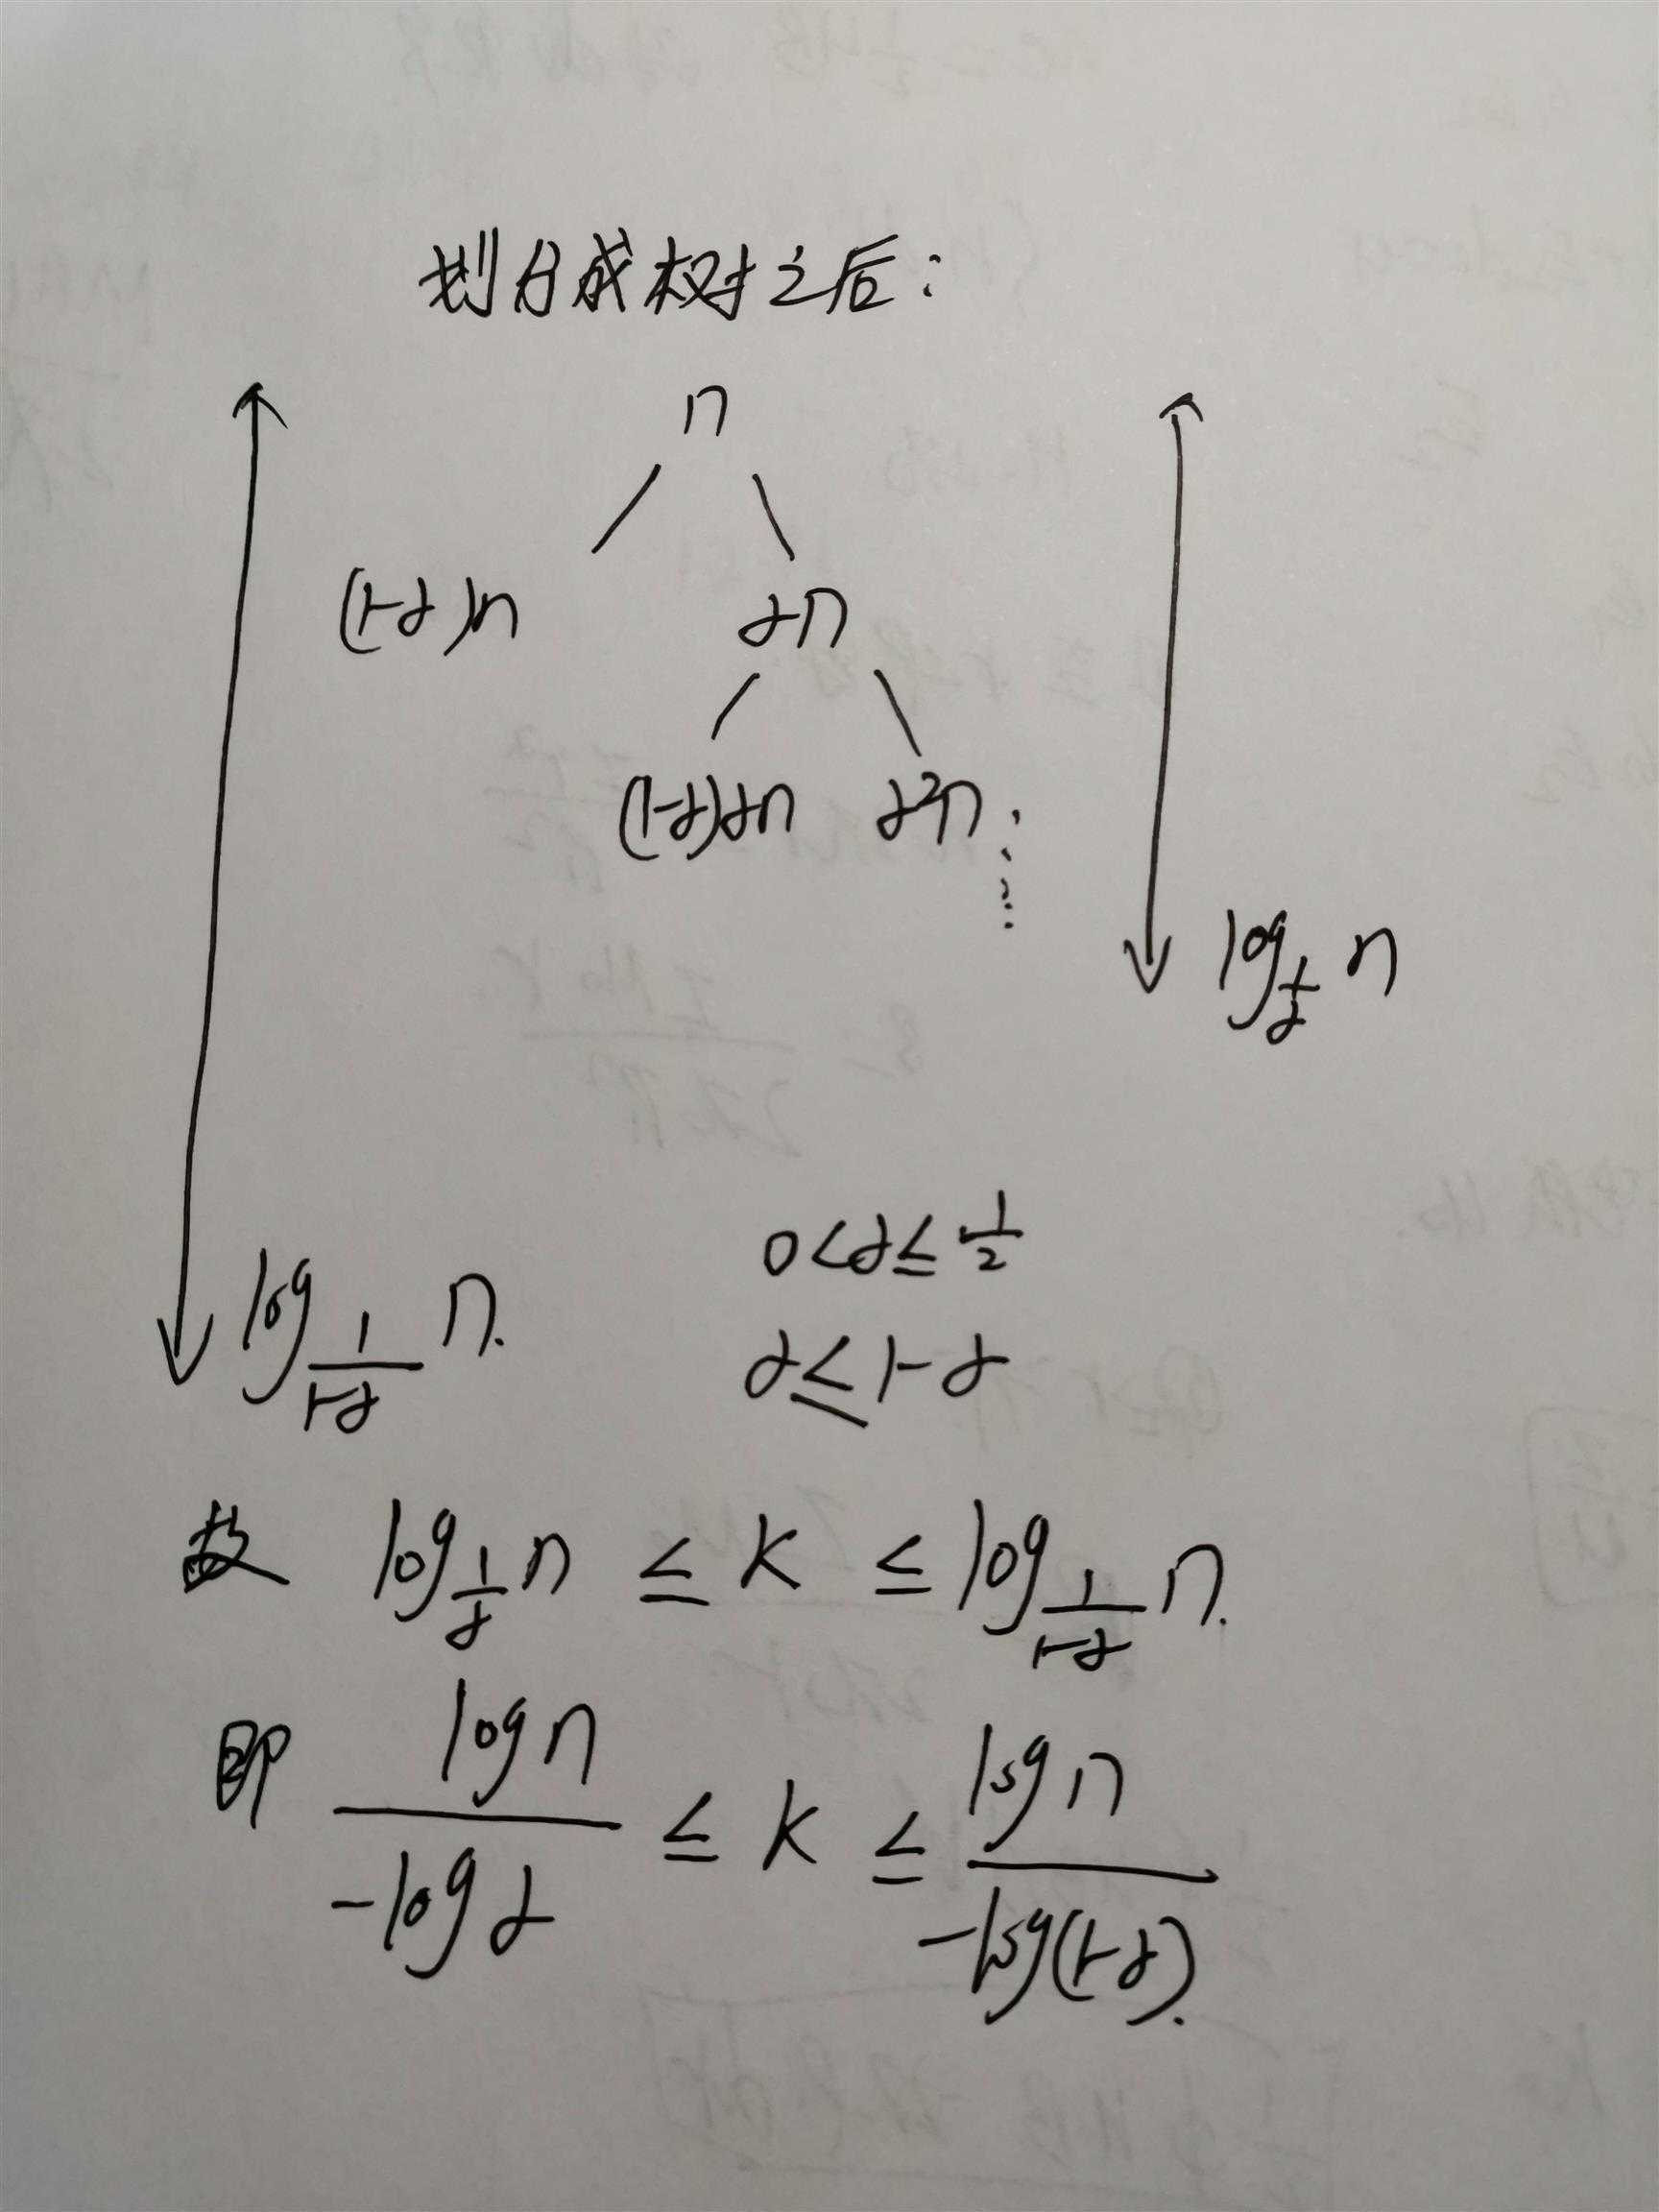 划分成树之后:
n
(1-α)n αn
(1-α)αn α²n
log_{1/α} n
0<α≤1/2
log_{1/(1-α)} n.
α≤1-α
故 log_{1/α} n ≤ k ≤ log_{1/(1-α)} n.
即 log n / -log α ≤ k ≤ log n / -log(1-α).